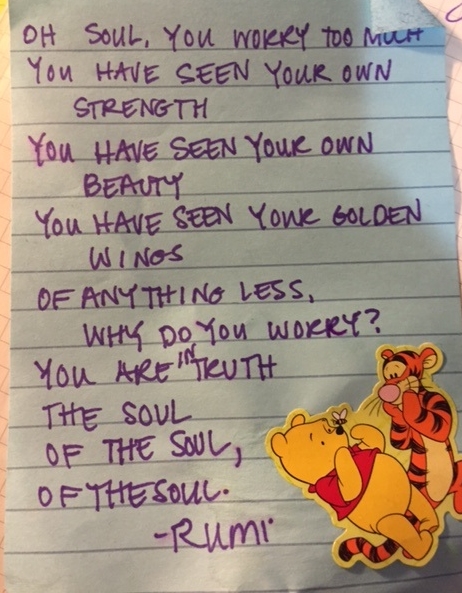 OH SOUL, YOU WORRY TOO MUCH
YOU HAVE SEEN YOUR OWN
STRENGTH
YOU HAVE SEEN YOUR OWN
BEAUTY
YOU HAVE SEEN YOUR GOLDEN
WINGS
OF ANYTHING LESS,
WHY DO YOU WORRY?
YOU ARE IN TRUTH
THE SOUL
OF THE SOUL,
OF THE SOUL.
-RUMI